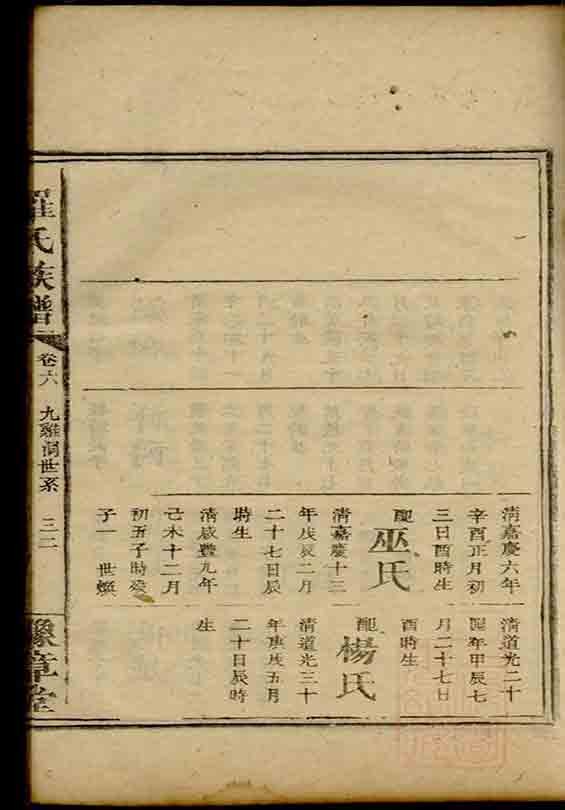 清嘉慶六年
辛酉正月初
三日酉時生
配
巫氏
清嘉慶十三
年戊辰二月
二十七日辰
時生
清咸豐九年
己未十二月
初五子時歿
子一 世
清道光二十
四年甲辰七
月二十七日
酉時生
配
楊氏
清道光三十
年庚戌五月
二十日辰時
生
羅氏族譜
卷六
九雞洞世系
三二
豫章堂